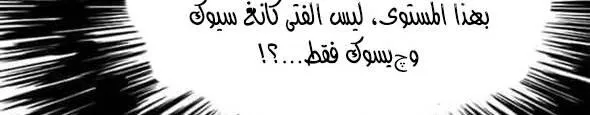 بهذا المستوى، ليس الفتى كانغ سيوك
وچيسوك فقط...؟!